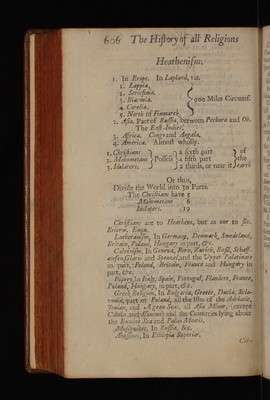 606 The History of all Religions
Heathenism.
1. In Europe. In Lapland, viz.
1. Lappia,
2. Scricfinia.
3. Biarmia.
4. Corelia.
5. North of Finmarck
900 Miles Circumf.
2. Asia. Part of Russia, between Pechora and Ob.
The East-Indies.
3. Africa. Congo and Angola.
4. America. Almost wholly.
1. Christians.
2. Mahometans
3. Idolaters.
Possess
a sixth part
a fifth part
2 thirds, or near it
of
the
earth
Or thus,
Divide the World into 30 Parts.
The Christians have 5
Mahometans 6
Idolaters. 19
Christians are to Heathens, but as one to six.
Brierw. Enqu.
Lutheranism, In Germany, Denmark, Swedeland,
Britain, Poland, Hungary in part, &c.
Calvinism, In Geneva, Bern, Zurich, Basil, Schaff-
ausen, Glaris and the Upper Palatinate
in part, Poland, Britain, France and Hungary in
part, &c.
Popery, In Italy, Spain, Portugal, Flanders, France,
Poland, Hungary, in part, &c.
Greek Religion, In Bulgaria, Greece, Dacia, Scla-
vonia, part of Poland, all the Isles of the Adriatic,
Ionian, and Ægean Seas, all Asia Minor, (except
Cilicia and ) and the Countries lying about
the Euxine Sea and Palus Meotis.
Muscovites, In Russia, &c.
Abassines, In Ethiopia Superior.